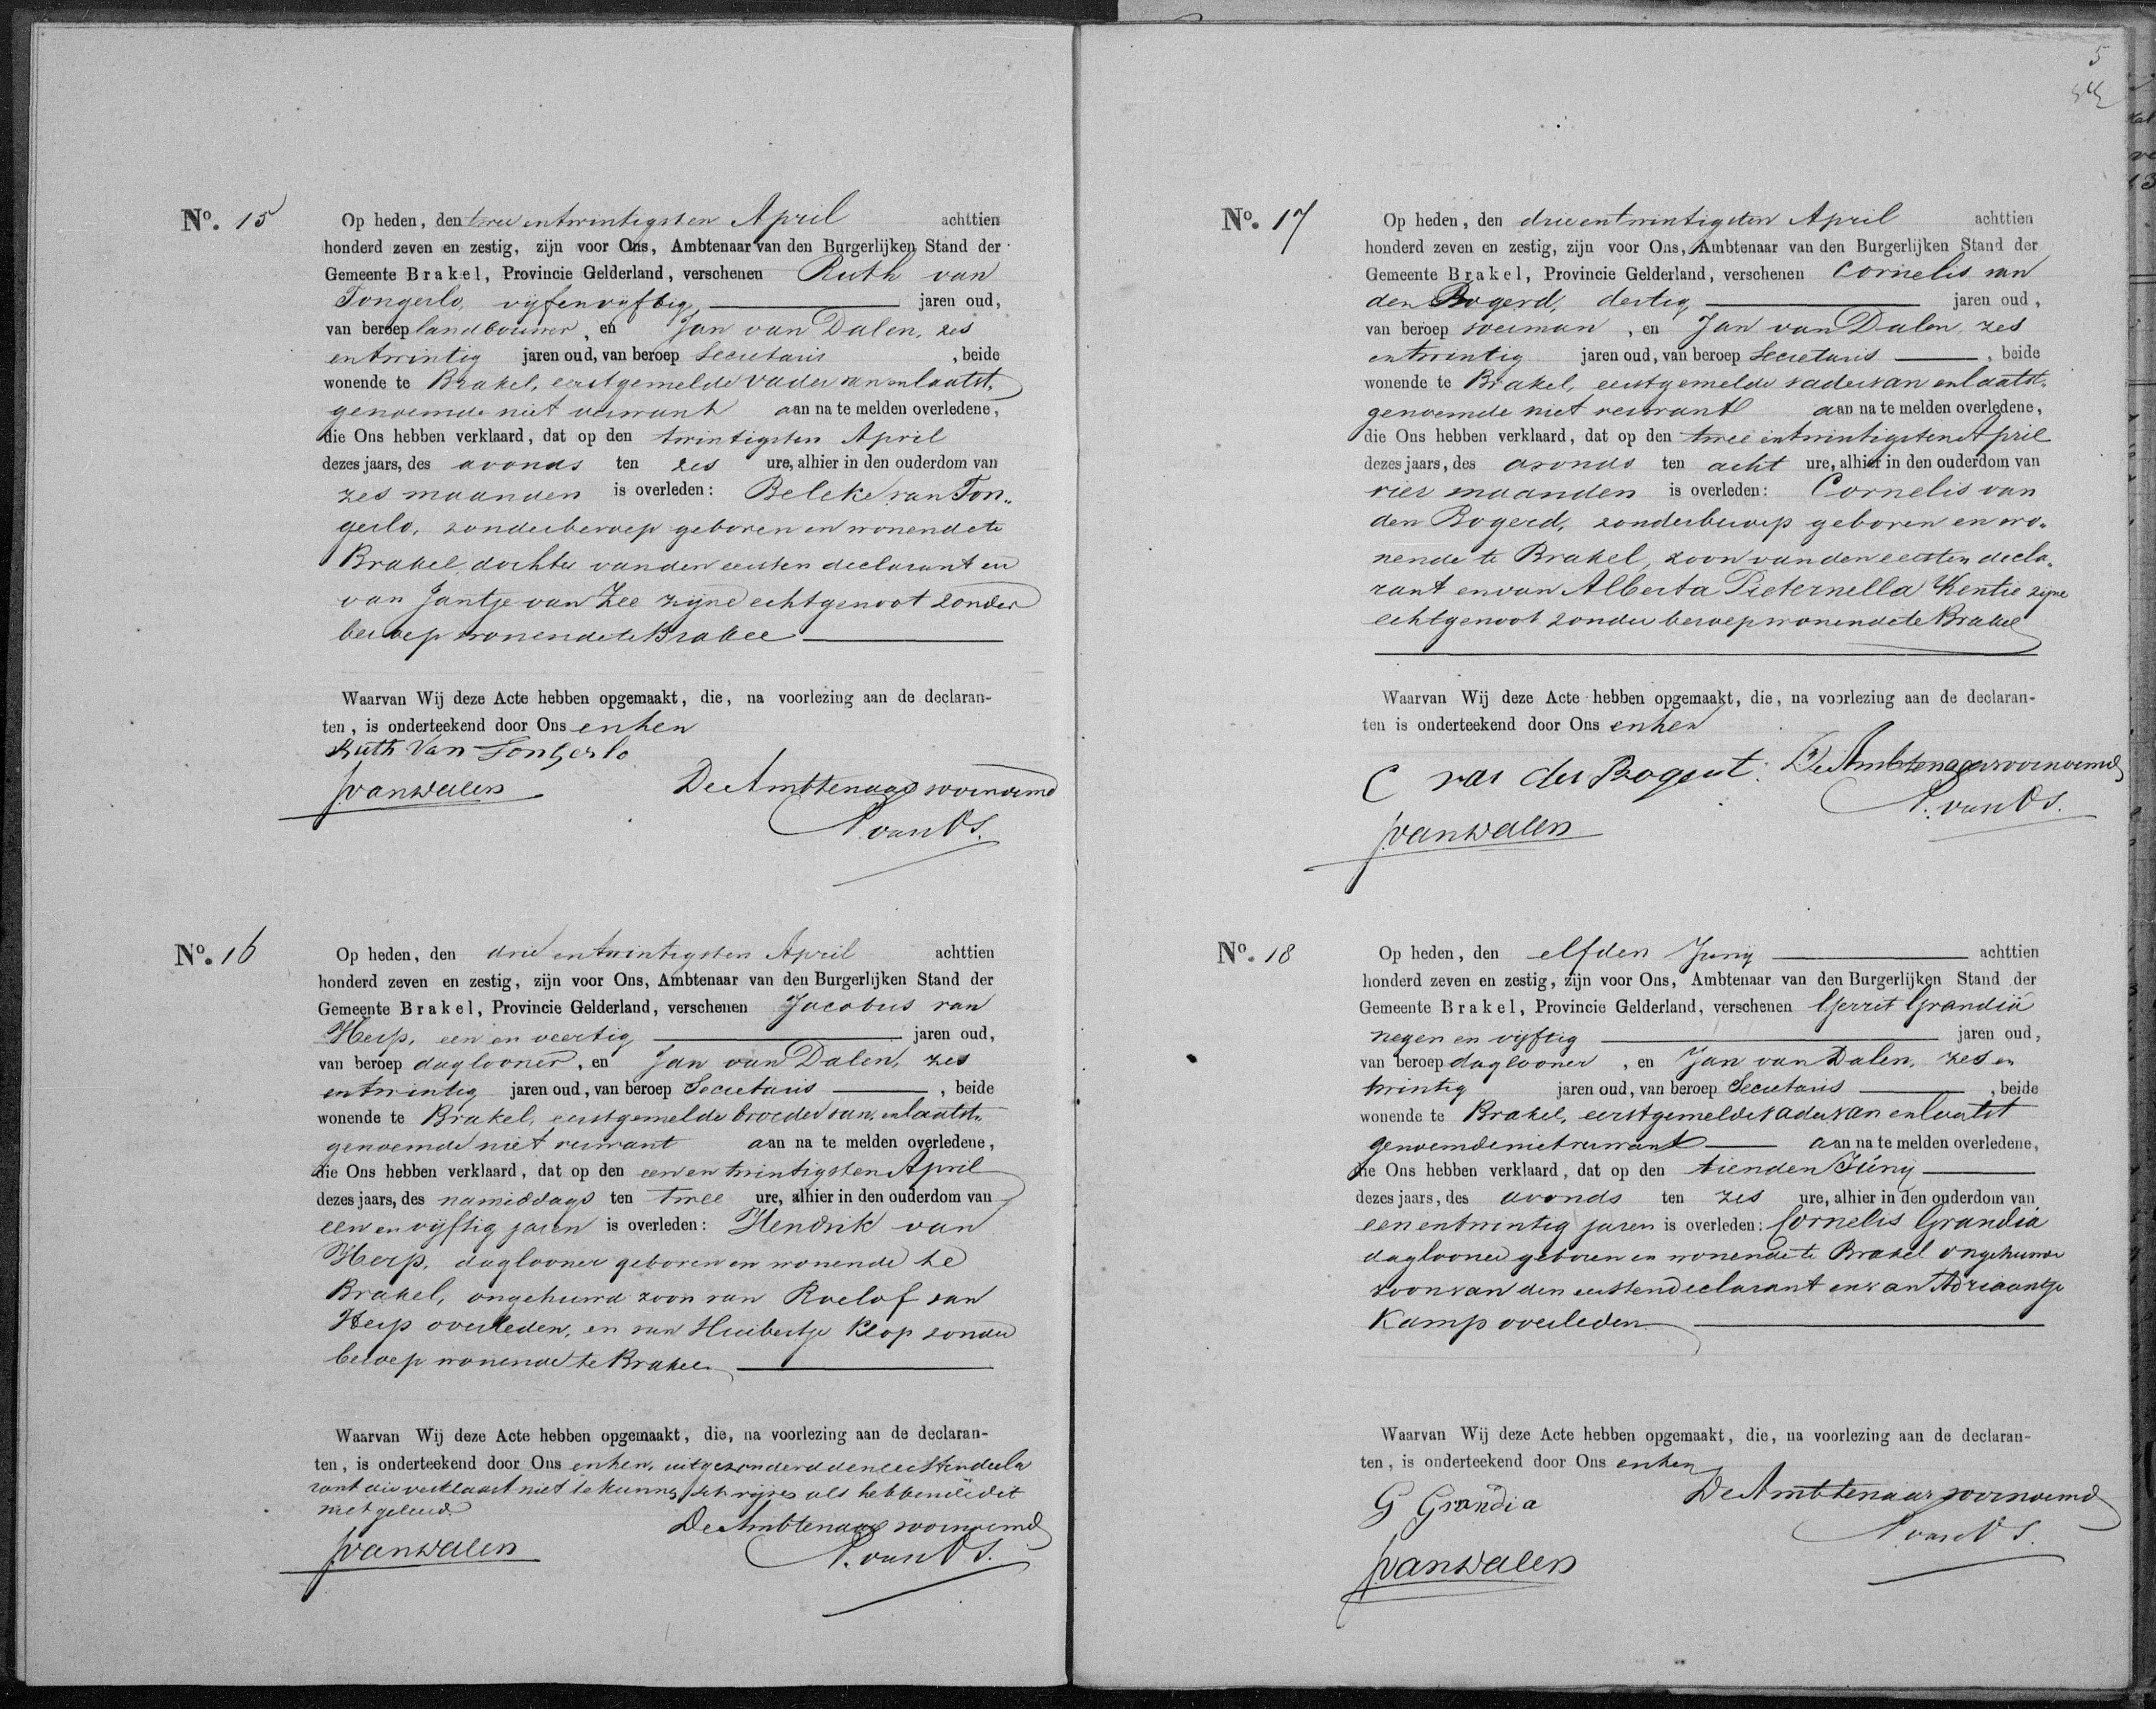 No. 15
Op heden, den twee entwintigsten April achttien
honderd zeven en zestig, zijn voor Ons, Ambtenaar van den Burgerlijken Stand der
Gemeente Brakel, Provincie Gelderland, verschenen Ruth van
Tongerlo, vijfenvijftig jaren oud,
van beroep landbouwer, en Jan van Dalen, zes
entwintig jaren oud, van beroep Secretaris, beide
wonende te Brakel, eerstgemelde vader van en laatst„
genoemde niet verwant aan na te melden overledene,
die Ons hebben verklaard, dat op den twintigsten April
dezes jaars, des avonds ten zes ure, alhier in den ouderdom van
zes maanden is overleden: Beleke van Ton„
gerlo, zonder beroep geboren en wonende te
Brakel, dochter van den eersten declarant en
van Jantje van Zee zijne echtgenoot zonder
beroep wonende te Brakel
Waarvan Wij deze Acte hebben opgemaakt, die, na voorlezing aan de declaran-
ten, is onderteekend door Ons en hen
Ruth Van Tongerlo
JvanDalen De Ambtenaar voornoemd
P. van Os.
No. 16
Op heden, den drie entwintigsten April achttien
honderd zeven en zestig, zijn voor Ons, Ambtenaar van den Burgerlijken Stand der
Gemeente Brakel, Provincie Gelderland, verschenen Jacobus van
Herp, een en veertig jaren oud,
van beroep daglooner, en Jan van Dalen, zes
entwintig jaren oud, van beroep Secretaris, beide
wonende te Brakel, eerstgemelde broeder van, en laatst„
genoemde niet verwant aan na te melden overledene,
die Ons hebben verklaard, dat op den een en twintigsten April
dezes jaars, des namiddags ten twee ure, alhier in den ouderdom van
een en vijftig jaren is overleden: Hendrik van
Herp, daglooner geboren en wonende te
Brakel, ongehuwd zoon van Roelof van
Herp overleden, en van Huibertje Klop zonder
beroep wonende te Brakel
Waarvan Wij deze Acte hebben opgemaakt, die, na voorlezing aan de declaran-
ten, is onderteekend door Ons en hen, uitgezonderd den eersten decla
rant die verklaart niet te kunnen schrijven als hebbende dit
niet geleerd.
De Ambtenaar voornoemd
JvanDalen P. van Os.
5
No. 17
Op heden, den drieentwintigsten April achttien
honderd zeven en zestig, zijn voor Ons, Ambtenaar van den Burgerlijken Stand der
Gemeente Brakel, Provincie Gelderland, verschenen Cornelis van
den Bogerd, dertig jaren oud,
van beroep voerman, en Jan van Dalen, zes
entwintig jaren oud, van beroep Secretaris, beide
wonende te Brakel, eerstgemelde vader van en laatst„
genoemde niet verwant aan na te melden overledene,
die Ons hebben verklaard, dat op den twee entwintigsten April
dezes jaars, des avonds ten acht ure, alhier in den ouderdom van
vier maanden is overleden: Cornelis van
den Bogerd, zonder beroep geboren en wo„
nende te Brakel, zoon van den eersten decla„
rant en van Alberta Pieternella Kentie zijne
echtgenoot zonder beroep wonende te Brakel
Waarvan Wij deze Acte hebben opgemaakt, die, na voorlezing aan de declaran-
ten is onderteekend door Ons en hen
C van der Bogert. De Ambtenaar voornoemd
P. van Os.
JvanDalen
No. 18
Op heden, den elfden Juny achttien
honderd zeven en zestig, zijn voor Ons, Ambtenaar van den Burgerlijken Stand der
Gemeente Brakel, Provincie Gelderland, verschenen Gerrit Grandia
negen en vijftig jaren oud,
van beroep daglooner, en Jan van Dalen, zes en
twintig jaren oud, van beroep Secretaris, beide
wonende te Brakel, eerstgemelde vader van en laatst
genoemde niet verwant aan na te melden overledene,
die Ons hebben verklaard, dat op den tienden Juny
dezes jaars, des avonds ten zes ure, alhier in den ouderdom van
een entwintig jaren is overleden: Cornelis Grandia
daglooner geboren en wonende te Brakel ongehuwd
zoon van den eersten declarant en van Adriaantje
Kamp overleden
Waarvan Wij deze Acte hebben opgemaakt, die, na voorlezing aan de declaran-
ten, is onderteekend door Ons en hen
G Grandia De Ambtenaar voornoemd
P. van Os.
JvanDalen